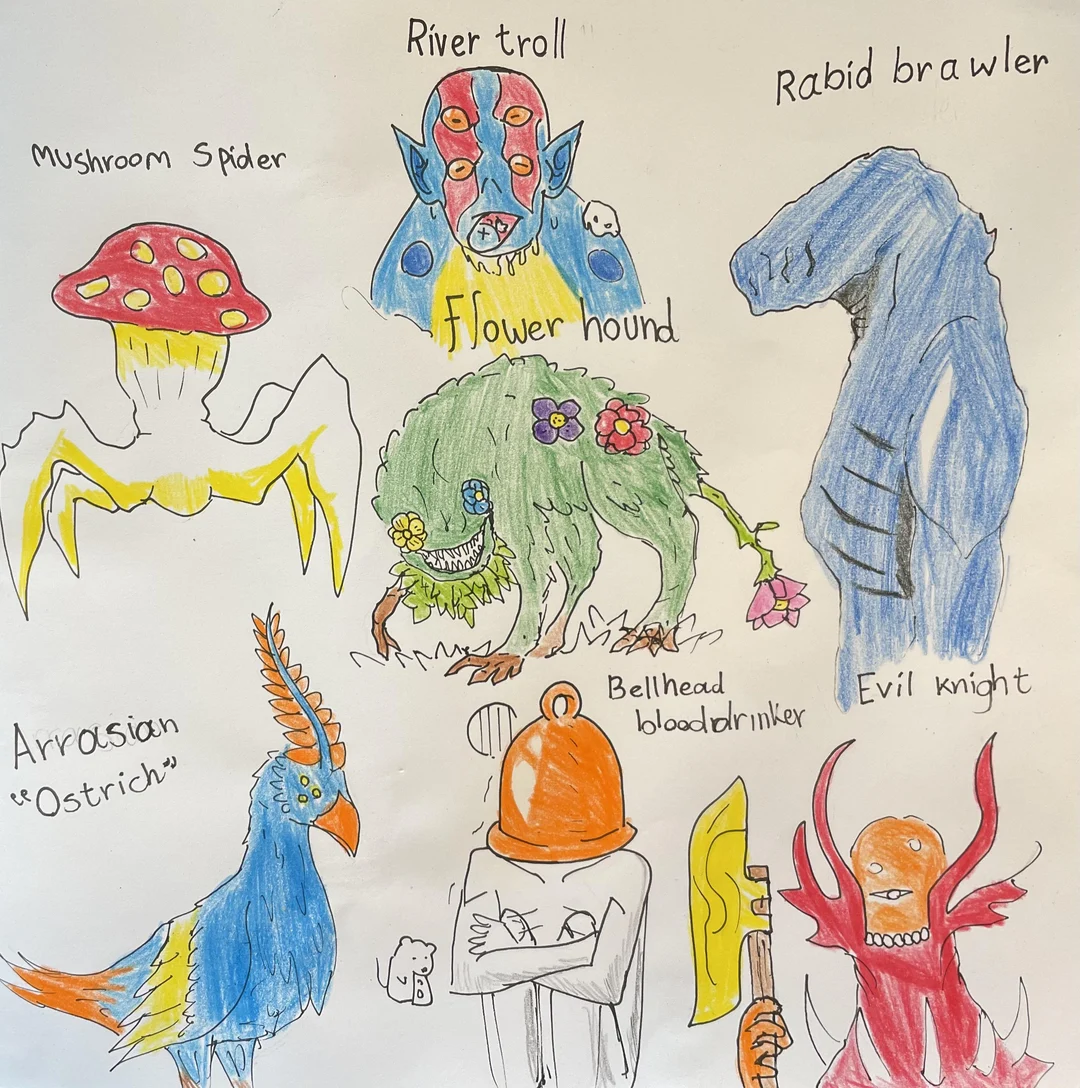 River troll
Rabid brawler
Mushroom Spider
Flower hound
Bellhead
blooddrinker
Evil knight
Arrasian
"Ostrich"